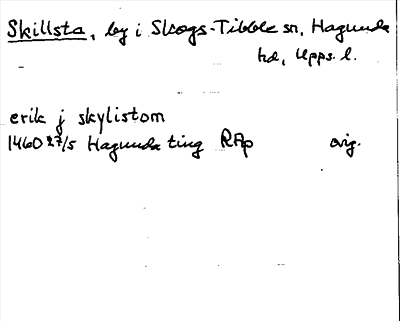 Skillsta, by i Skogs-Tibble sn, Hagunda
hd, Upps. l.
erik j skylistom
1460 27/5 Hagunda ting RAp orig.